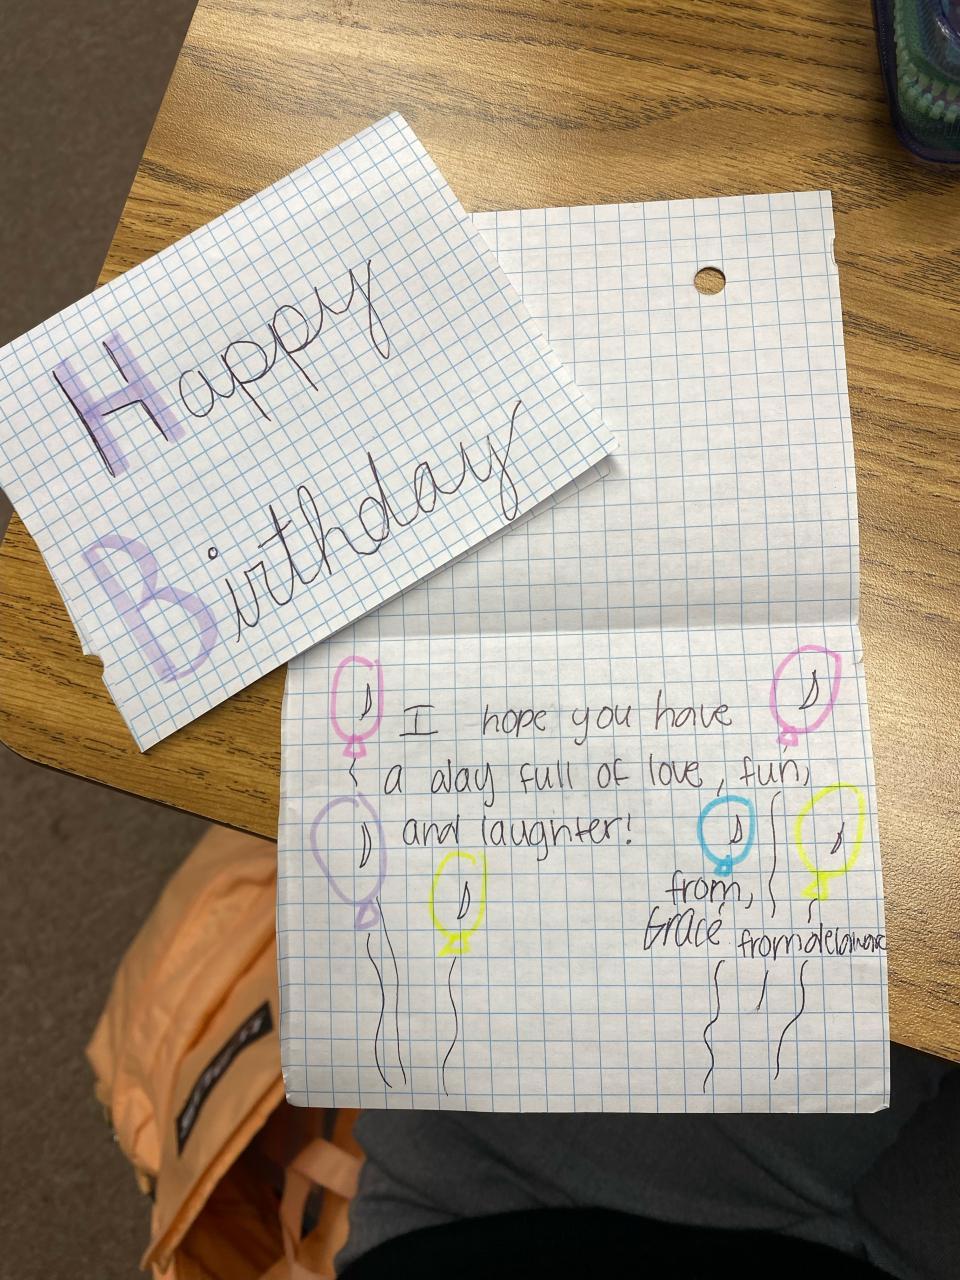 Happy
Birthday
I hope you have
a day full of love, fun,
and laughter!
from,
Grace
from delaware